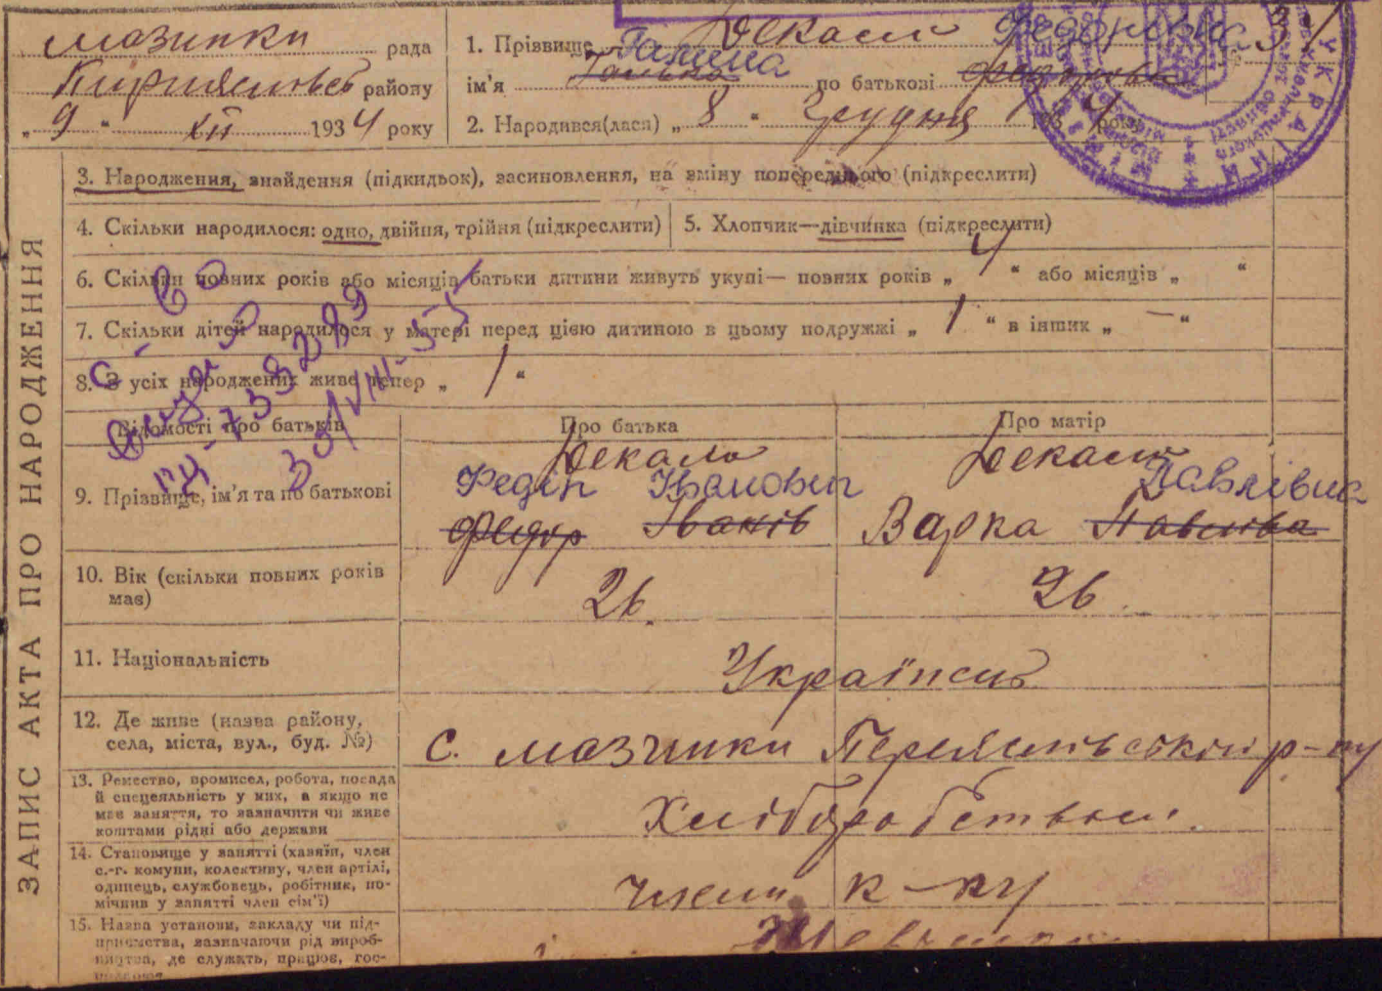 ЗАПИС АКТА ПРО НАРОДЖЕННЯ
Мазинки рада
району
„ 9 “ XII 1934 року
1. Прізвище Декало
ім'я Галина по батькові Федорівна
2. Народився(лася) „ 8 “ Грудня 1934 року
3. Народження, знайдення (підкидьок), засиновлення, на зміну попереднього (підкреслити)
4. Скільки народилося: одно, двійня, трійня (підкреслити)
5. Хлопчик—дівчинка (підкреслити)
6. Скільки повних років або місяців батьки дитини живуть укупі — повних років „ 4 “ або місяців „ “
7. Скільки дітей народилося у матері перед цією дитиною в цьому подружжі „ 1 “ в інших „ — “
8. З усіх народжених живе тепер „ 1 “
Відомості про батьків
Про батька
Про матір
9. Прізвище, ім'я та по батькові
Декало
Федір Іванович
Федор Іванів
Декало
Павлівна
Варка Павлова
10. Вік (скільки повних років має)
26.
26.
11. Національність
12. Де живе (назва району,
села, міста, вул., буд. №)
с. Мазинки р-ну
13. Ремество, промисел, робота, посада
й спеціяльність у них, а якщо не
має заняття, то зазначити чи живе
коштами рідні або держави
Хліборобством.
14. Становище у занятті (хазяїн, член
с.-г. комуни, колективу, член артілі,
одинець, службовець, робітник, по-
мічник у занятті член сім'ї)
Член к-ну
15. Назва установи, закладу чи під-
приємства, зазначаючи рід вироб-
ництва, де служать, працює, гос-
УКРАЇНИ